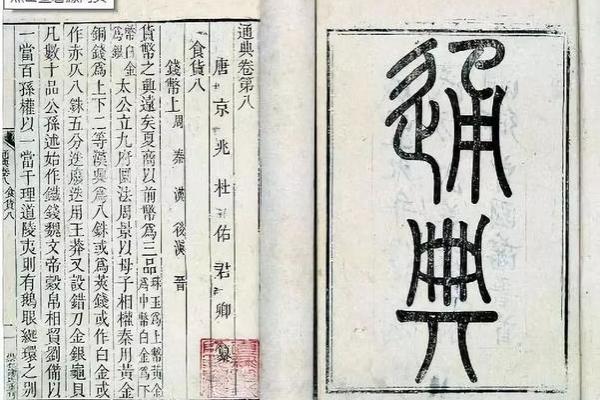 通典
通典卷第八
唐京兆杜佑君卿纂
食貨八
錢幣上 周 秦 漢 後漢 晉
貨幣之興遠矣夏商以前幣爲三品珠玉爲上幣黃金爲中幣白金爲下
幣白金爲銀太公立九府圜法周景以母子相權秦用黃金
銅錢爲上下二等漢興爲八銖或爲莢錢或作白金或
作赤仄八銖五分迭廢迭用王莽又設錯刀金銀龜貝
凡數十品公孫述始作鐵錢魏文帝穀帛相貿劉備以
一當百孫權以一當千理道陵夷則有鵝眼綖環之別
通典卷八 食貨八